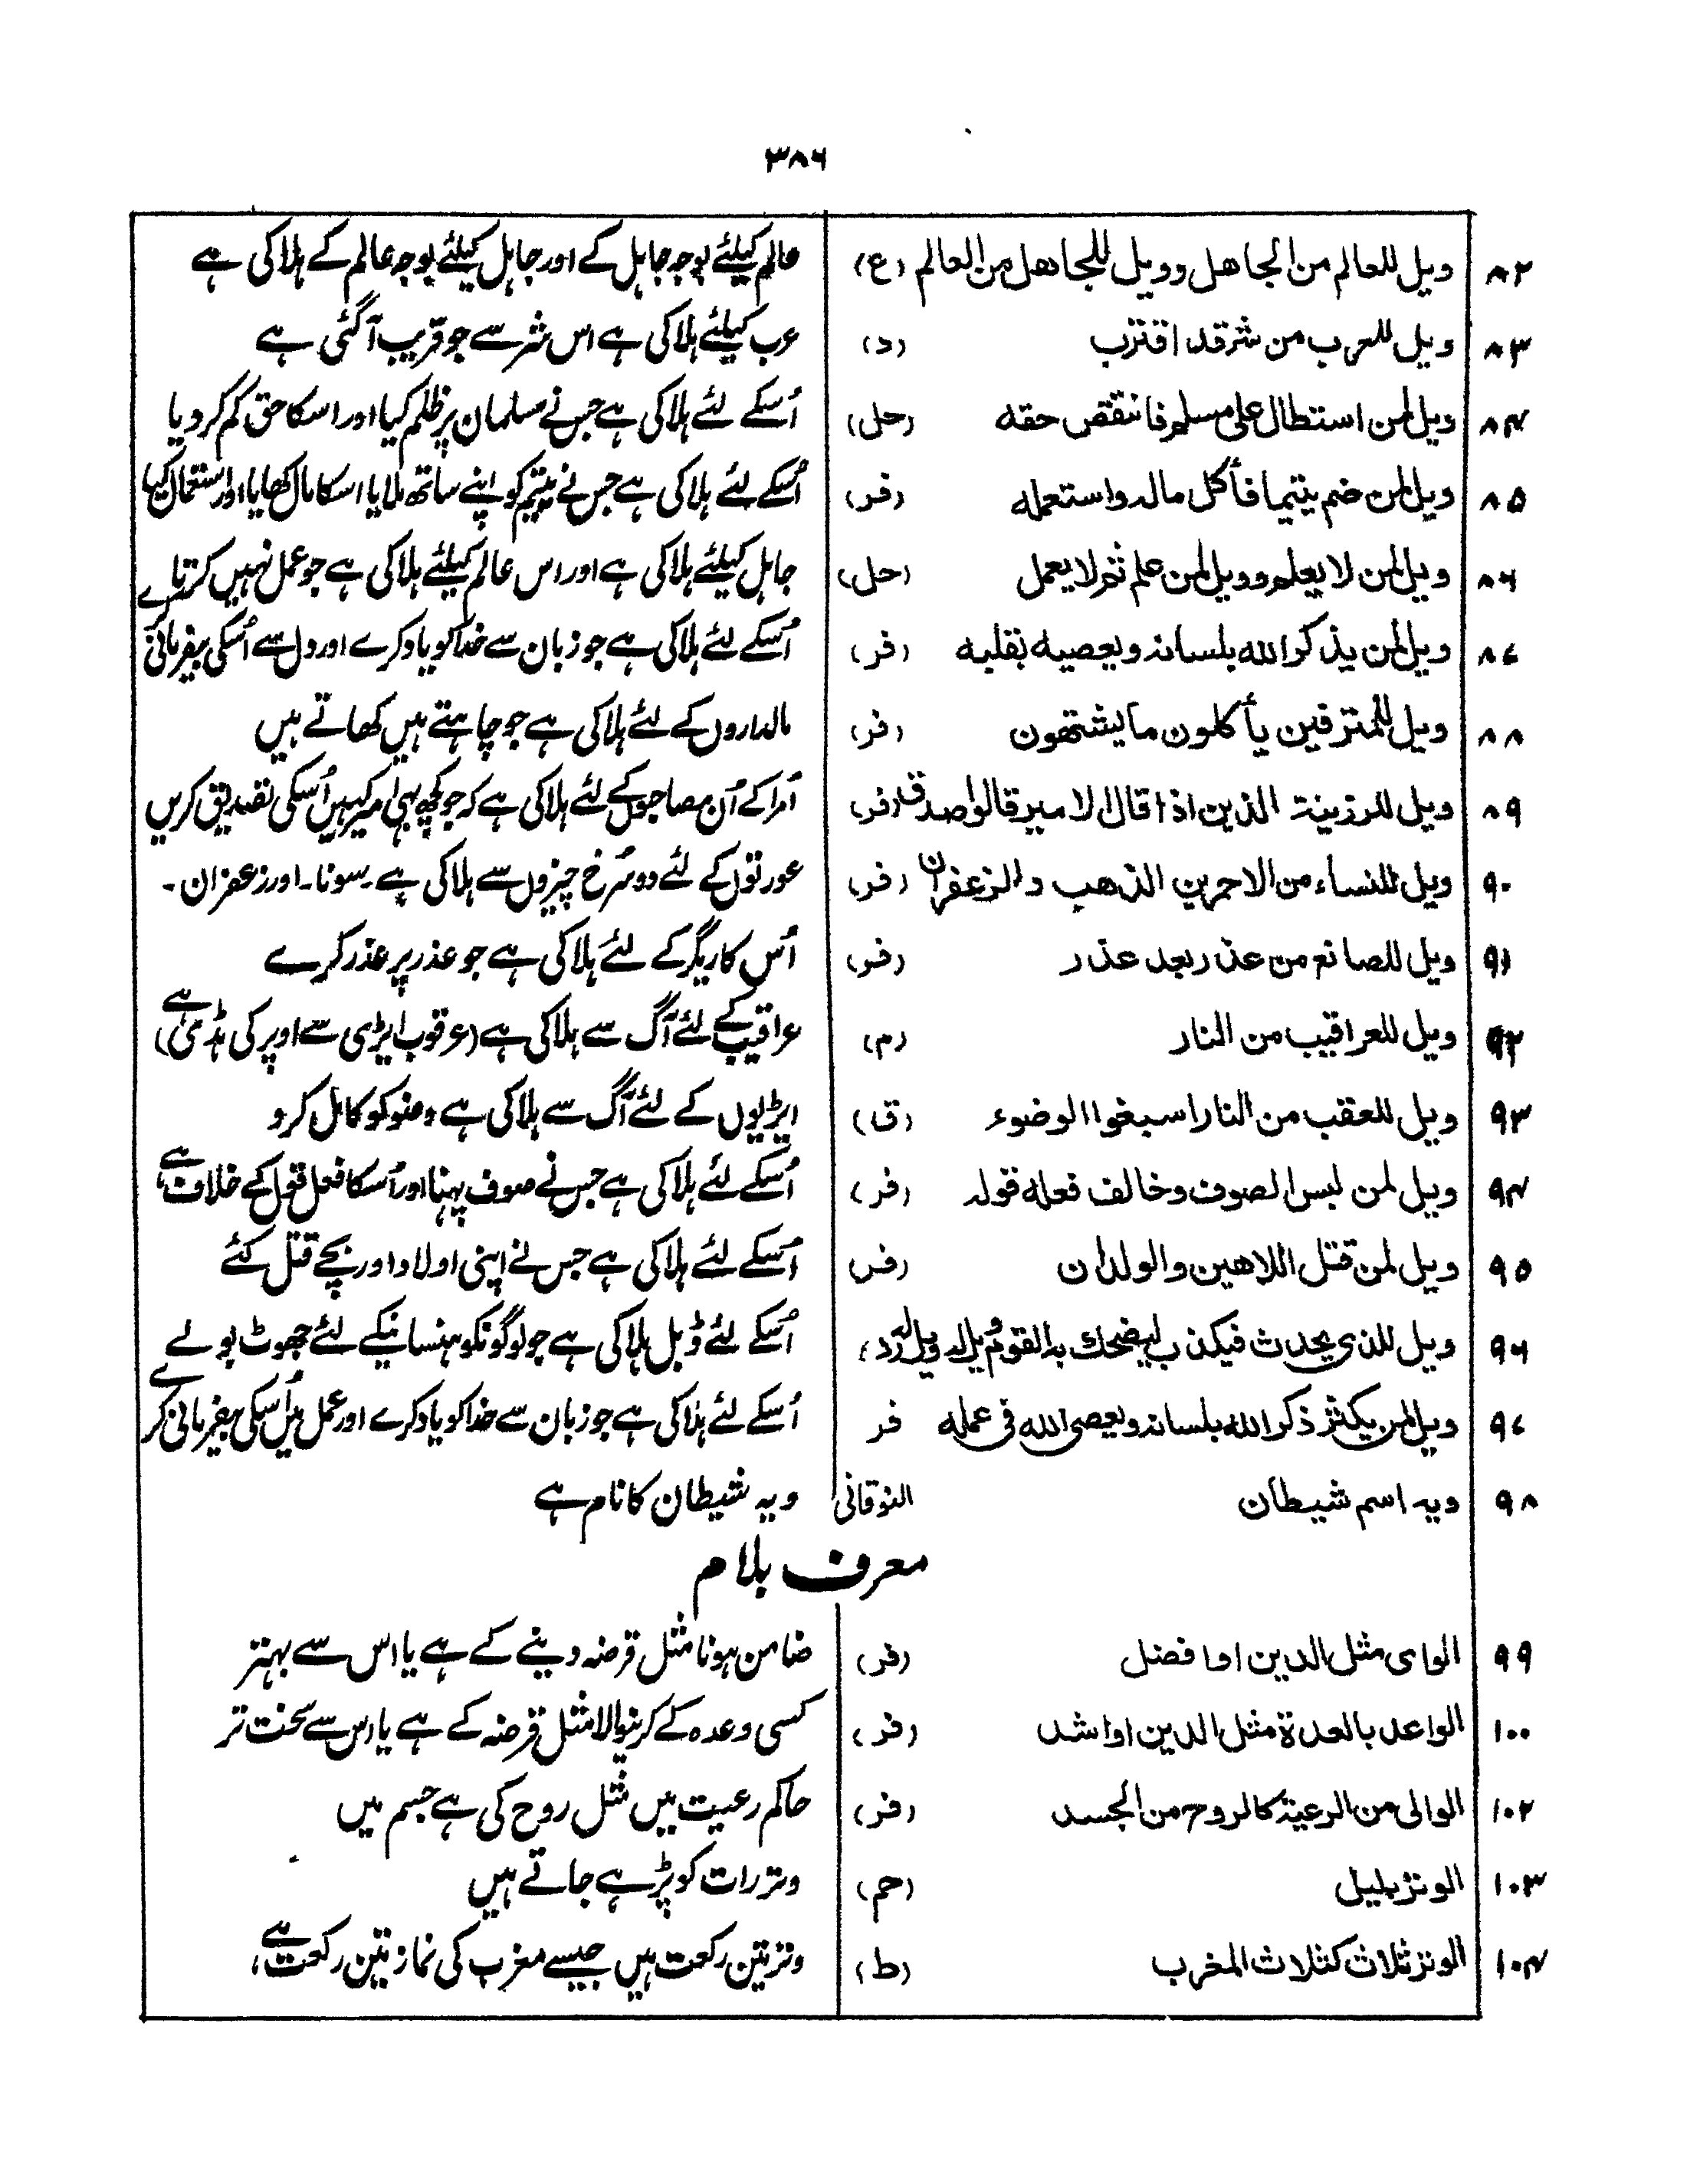 ۳۸۶
۸۲ ويل للعالم من الجاهل وويل للجاهل من العالم (ع) عالم کیلئے بوجہ جاہل کے اور جاہل کیلئے بوجہ عالم کے ہلاکی ہے
۸۳ ويل للعرب من شر قد اقترب (د) عرب کیلئے ہلاکی ہے اس شر سے جو قریب آگئی ہے
۸۴ ويل لمن استطال على مسلم فانتقص حقه (حل) اُسکے لئے ہلاکی ہے جس نے مسلمان پر ظلم کیا اور اسکا حق کم کر دیا
۸۵ ويل لمن ضم يتيما فأكل ماله واستعمله (فر) اُسکے لئے ہلاکی ہے جس نے یتیم کو اپنے ساتھ ملایا اسکا مال کھایا اور استعمال کیا
۸۶ ويل لمن لا يعلم وويل لمن علم ثم لا يعمل (حل) جاہل کیلئے ہلاکی ہے اور اس عالم کیلئے ہلاکی ہے جو عمل نہیں کرتا
۸۷ ويل لمن يذكر الله بلسانه ويعصيه بقلبه (فر) اُسکے لئے ہلاکی ہے جو زبان سے خدا کو یاد کرے اور دل سے اُسکی بیفرمانی کرے
۸۸ ويل للمترفين يأكلون ما يشتهون (فر) مالداروں کے لئے ہلاکی ہے جو چاہتے ہیں کھاتے ہیں
۸۹ ويل للرزينة الذين اذا قال الامير قالوا صدق (فر) اُمرا کے اُن مصاحبوں کے لئے ہلاکی ہے کہ جو کچھ بھی امیر کہیں اُسکی تصدیق کریں
۹۰ ويل للنساء من الاحمرين الذهب والزعفران (فر) عورتوں کے لئے دو سُرخ چیزوں سے ہلاکی ہے ۔ سونا ۔ اور زعفران ۔
۹۱ ويل للصانع من عذر بعد عذر (فر) اُس کاریگر کے لئے ہلاکی ہے جو عذر پر عذر کرے
۹۲ ويل للعراقيب من النار (م) عراقیب کے لئے آگ سے ہلاکی ہے (عرقوب ایڑی سے اوپر کی ہڈی ہے)
۹۳ ويل للعقب من النار اسبغوا الوضوء (ق) ایڑیوں کے لئے آگ سے ہلاکی ہے وضو کو کامل کرو
۹۴ ويل لمن لبس الصوف وخالف فعله قوله (فر) اُسکے لئے ہلاکی ہے جس نے صوف پہنا اور اُسکا فعل قول کے خلاف ہے
۹۵ ويل لمن قتل اللاهين والولدان (فر) اُسکے لئے ہلاکی ہے جس نے اپنی اولاد اور بچے قتل کئے
۹۶ ويل للذى يحدث فيكذب ليضحك به القوم ويل له ويل له (د) اُسکے لئے ڈبل ہلاکی ہے جو لوگونکو ہنسانیکے لئے جھوٹ بولے
۹۷ ويل لمن يكثر ذكر الله بلسانه ويعصى الله فى عمله فر اُسکے لئے ہلاکی ہے جو زبان سے خدا کو یاد کرے اور عمل میں اُسکی بیفرمانی کرے
۹۸ ويه اسم شيطان النوقانى ویہ شیطان کا نام ہے
معرف بلام
۹۹ الواى مثل الدين او افضل (فر) ضامن ہونا مثل قرضہ دینے کے ہے یا اس سے بہتر
۱۰۰ الواعد بالعدة مثل الدين او اشد (فر) کسی وعدہ کے کرنیوالا مثل قرضہ کے ہے یا اس سے سخت تر
۱۰۲ الوالى من الرعية كالروح من الجسد (فر) حاکم رعیت میں مثل روح کی ہے جسم میں
۱۰۳ الوتر بليل (حم) وتر رات کو پڑہے جاتے ہیں
۱۰۴ الوتر ثلاث كثلاث المغرب (ط) وتر تین رکعت ہیں جیسے مغرب کی نماز تین رکعت ہے،